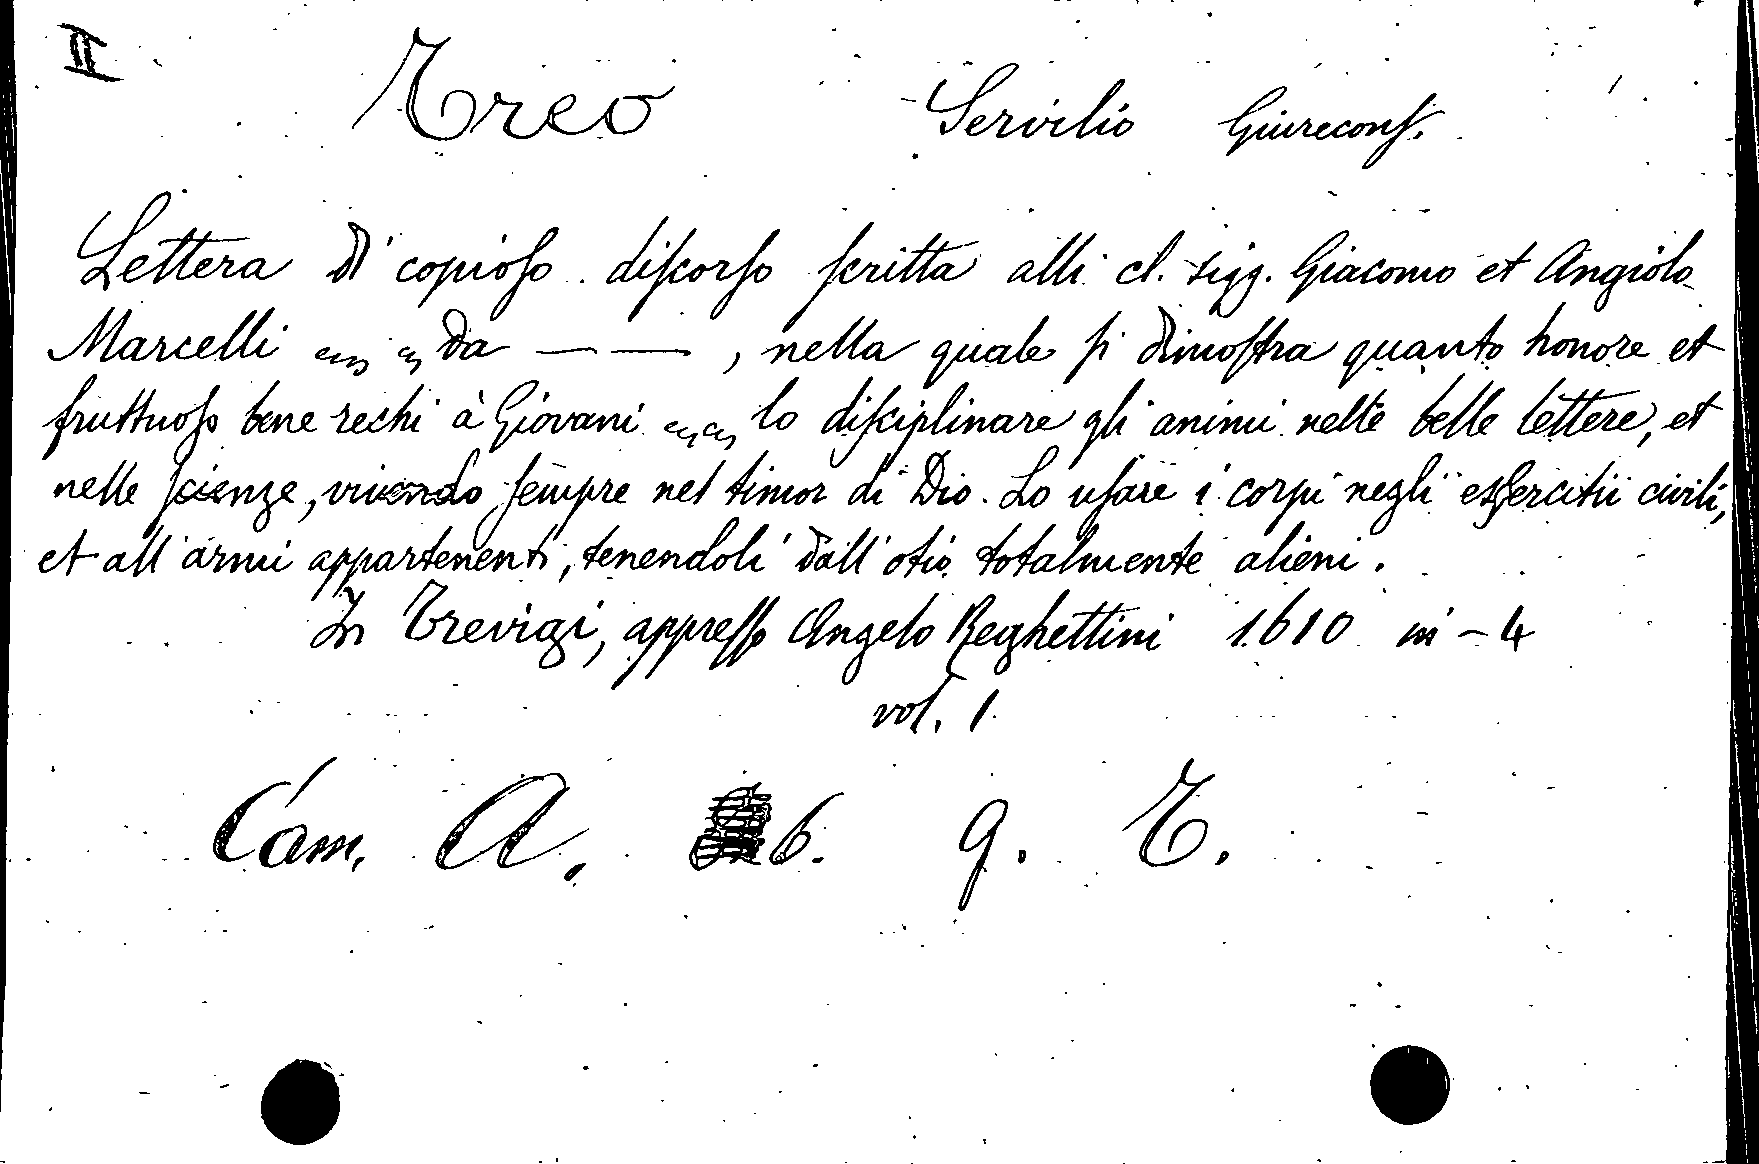 II
Treo Servilio Giureconſ.
Lettera di copioſo diſcorſo ſcritta alli cl. sigg. Giacomo et Angiolo
Marcelli da — — , nella quale ſi dimoſtra quanto honore et
fruttuoſo bene rechi à Giovani lo diſciplinare gli animi nelle belle lettere, et
nelle ſcienze, vivendo ſempre nel timor di Dio. Lo uſare i corpi negli eſſercitii civili,
et all'armi appartenenti, tenendoli dall'otio totalmente alieni.
In Trevigi, appreſſo Angelo Reghettini 1610 in-4
vol. 1
Cam. A. 6. 9. T.